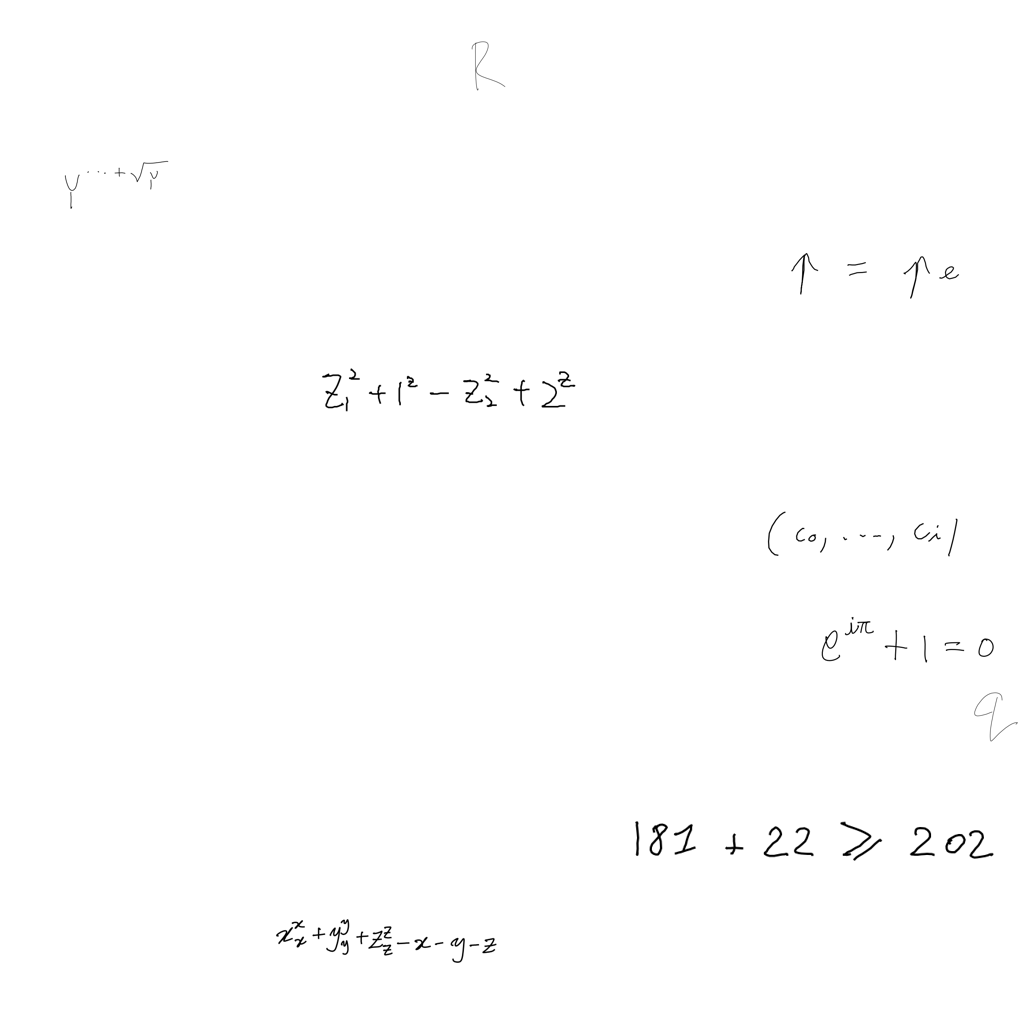 R
Y^{\dots+\sqrt{Y}}
↑ = ↑e
z_1^2 + 1^z - z_2^2 + 2^z
(c_0, ..., c_i)
e^{iπ} + 1 = 0
q
181 + 22 ⩾ 202
x_x^x + y_y^y + z_z^z - x - y - z